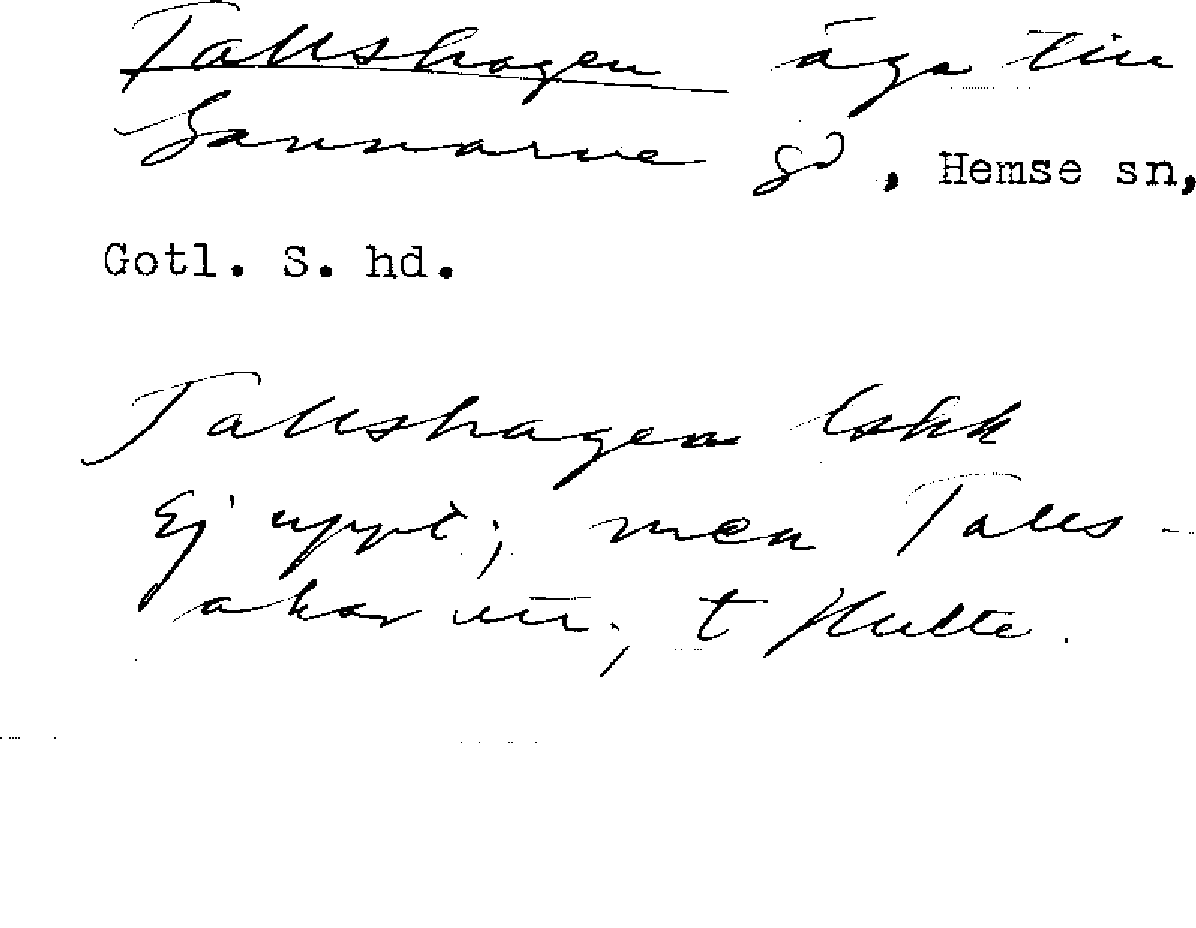 Tallshagen äga till
Sannarve gd, Hemse sn,
Gotl. S. hd.
Tallshagen
Ej uppt; men Talls-
åkar ; t Hulte.